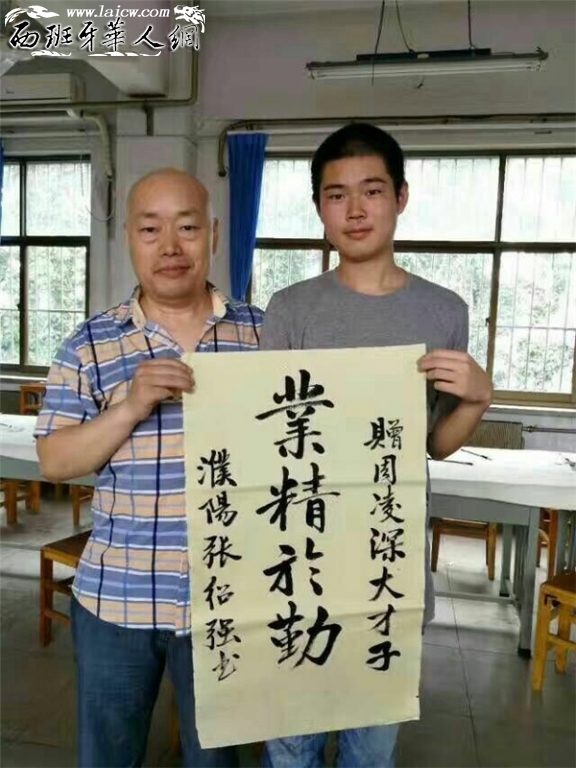 www.laicw.com
西班牙華人網
贈周凌深大才子
業精於勤
濮陽張紹强书